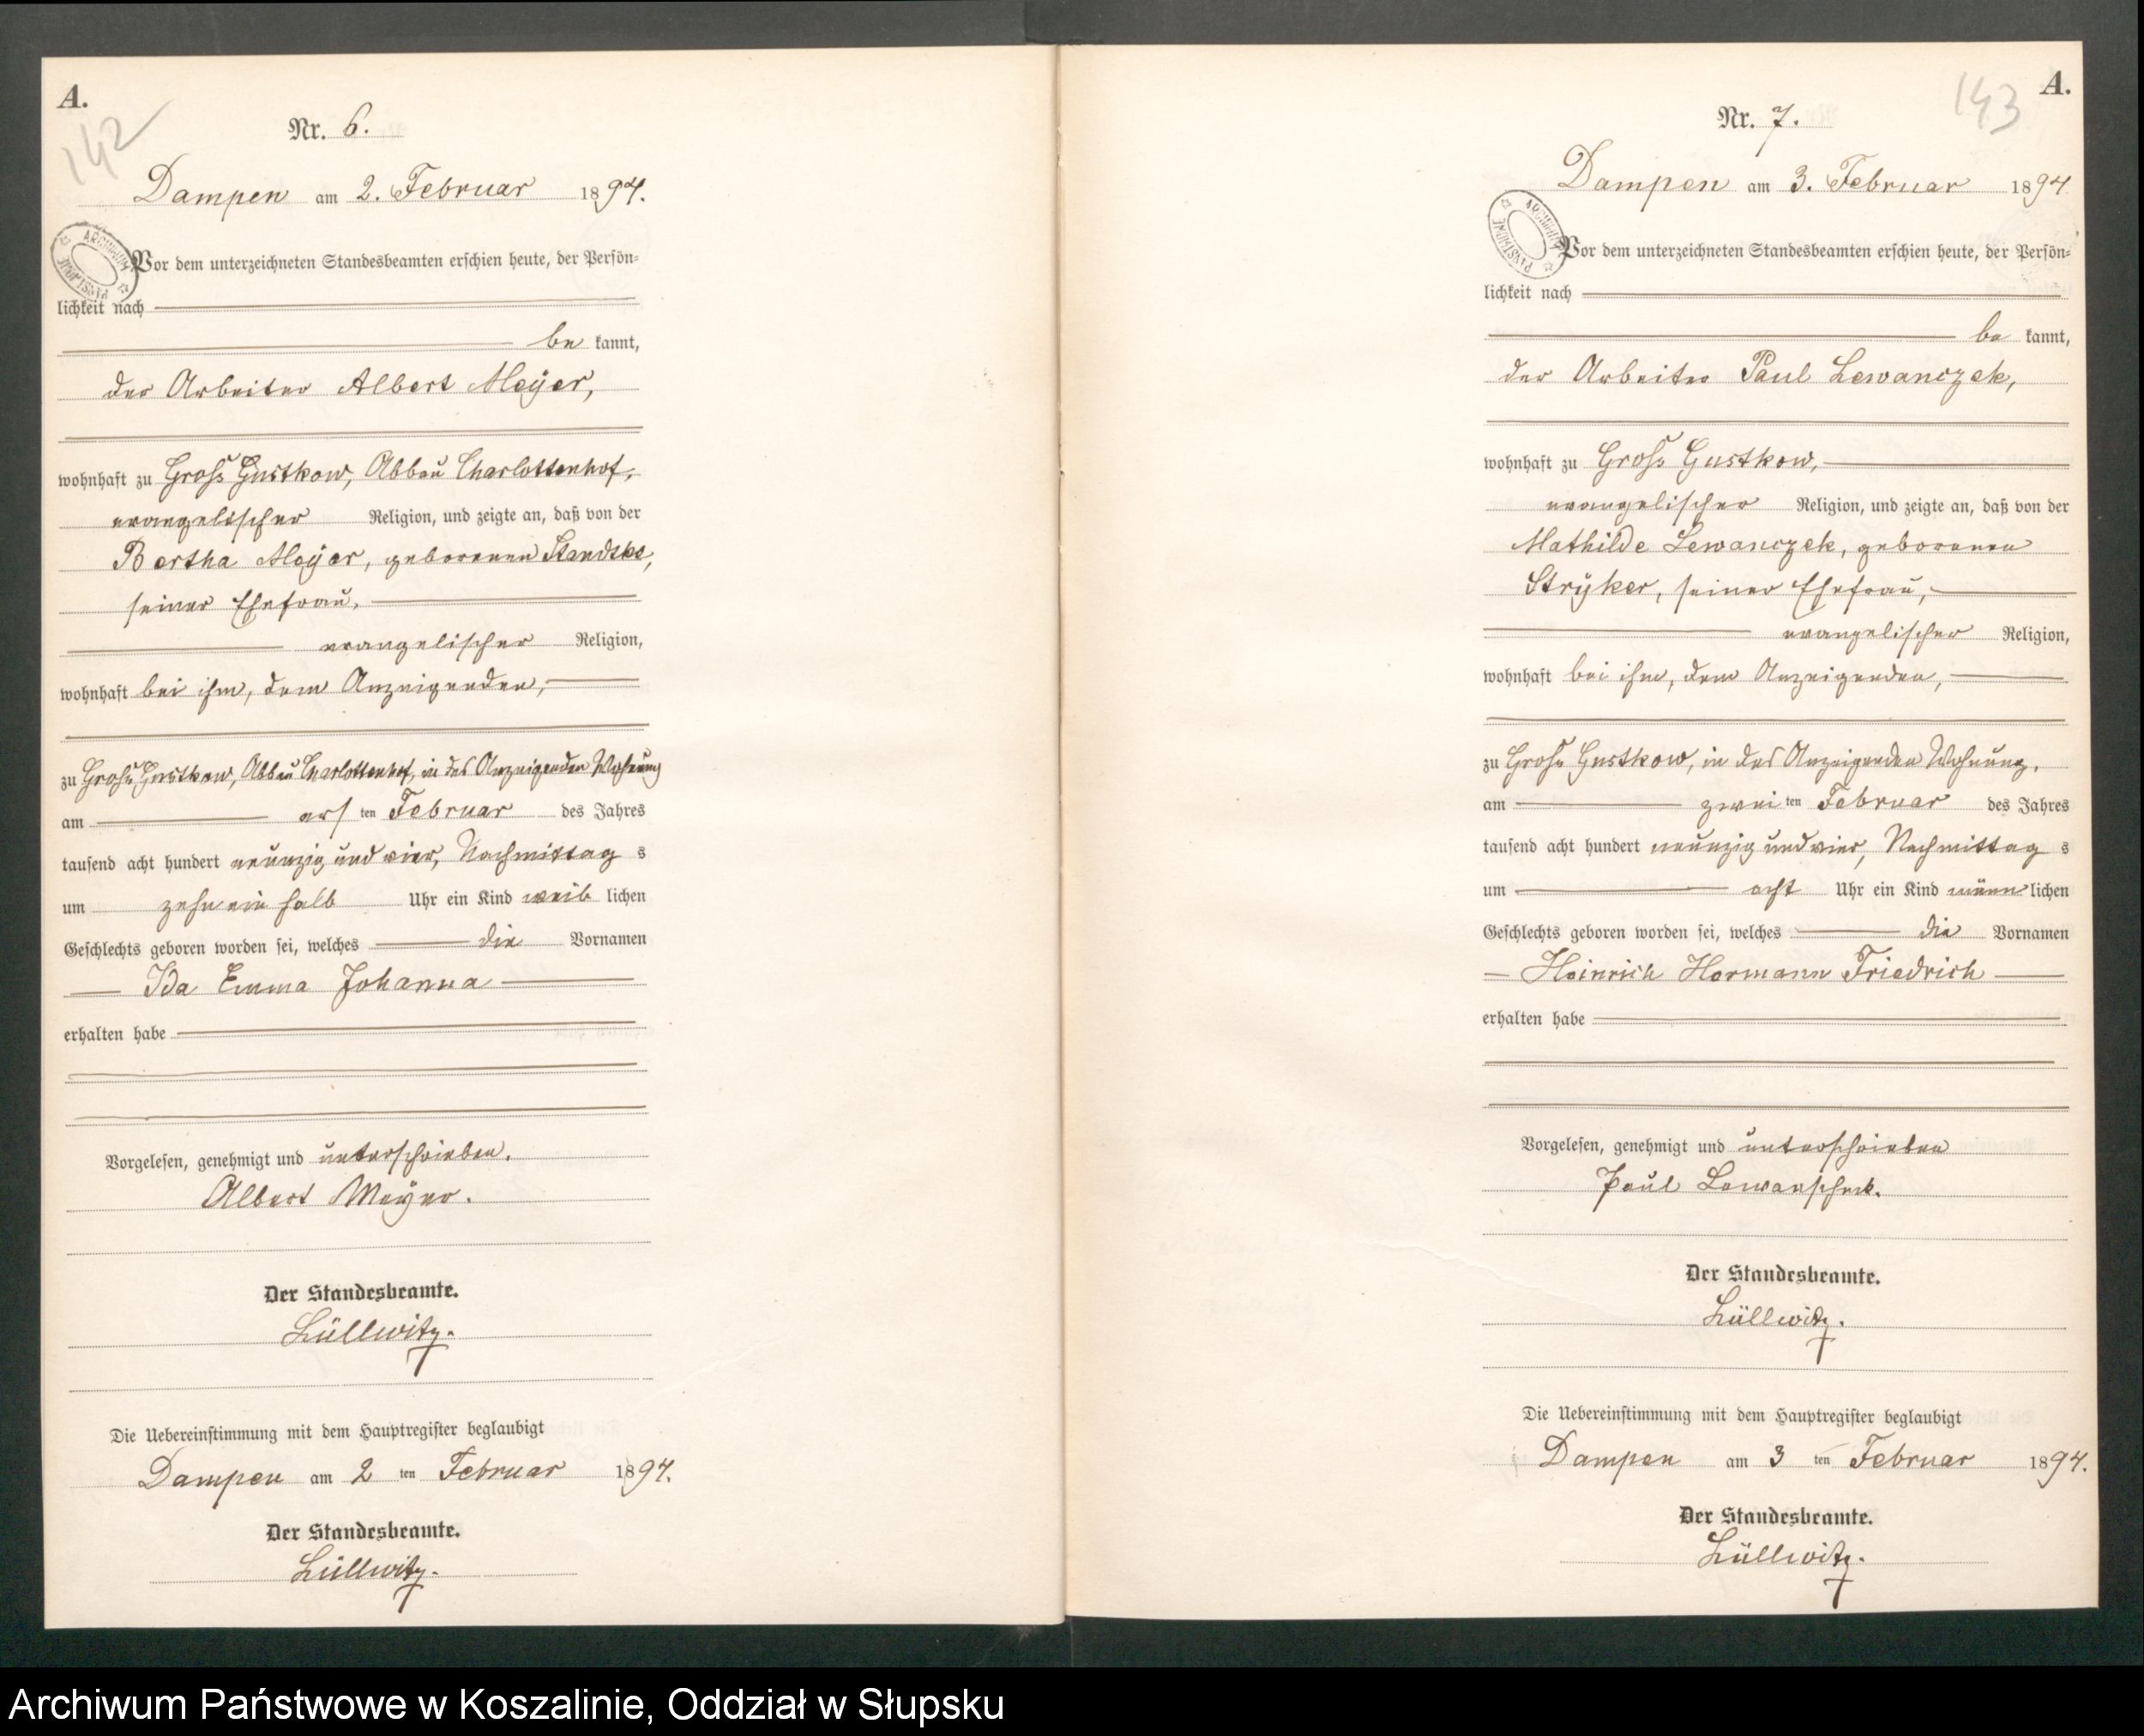 A.
142
Nr. 6.
Dampen am 2. Februar 1894.
Vor dem unterzeichneten Standesbeamten erschien heute, der Persön=
lichkeit nach
be kannt,
der Arbeiter Albert Meyer,
wohnhaft zu Groß Gustkow, Abbau Charlottenhof,
evangelischer Religion, und zeigte an, daß von der
Bertha Meyer, geborenen Standtke,
seiner Ehefrau,
evangelischer Religion,
wohnhaft bei ihm, dem Anzeigenden,
zu Groß Gustkow, Abbau Charlottenhof, in des Anzeigenden Wohnung
am ers ten Februar des Jahres
tausend acht hundert neunzig und vier, Nachmittag s
um zehn ein halb Uhr ein Kind weib lichen
Geschlechts geboren worden sei, welches die Vornamen
Ida Emma Johanna
erhalten habe
Vorgelesen, genehmigt und unterschrieben.
Albert Meyer.
Der Standesbeamte.
Lüllwitz.
Die Uebereinstimmung mit dem Hauptregister beglaubigt
Dampen am 2 ten Februar 1894.
Der Standesbeamte.
Lüllwitz.
A.
143
Nr. 7.
Dampen am 3. Februar 1894
ARCHIWUM PAŃSTWOWE
Vor dem unterzeichneten Standesbeamten erschien heute, der Persön=
lichkeit nach
be kannt,
der Arbeiter Paul Lewanczek,
wohnhaft zu Groß Gustkow,
evangelischer Religion, und zeigte an, daß von der
Mathilde Lewanczek, geborenen
Stryker, seiner Ehefrau,
evangelischer Religion,
wohnhaft bei ihm, dem Anzeigenden,
zu Groß Gustkow, in des Anzeigenden Wohnung,
am zwei ten Februar des Jahres
tausend acht hundert neunzig und vier, Nachmittag s
um acht Uhr ein Kind männ lichen
Geschlechts geboren worden sei, welches die Vornamen
Heinrich Hermann Friedrich
erhalten habe
Vorgelesen, genehmigt und unterschrieben
Paul Lewanscheck.
Der Standesbeamte.
Lüllwitz.
Die Uebereinstimmung mit dem Hauptregister beglaubigt
Dampen am 3 ten Februar 1894.
Der Standesbeamte.
Lüllwitz.
Archiwum Państwowe w Koszalinie, Oddział w Słupsku